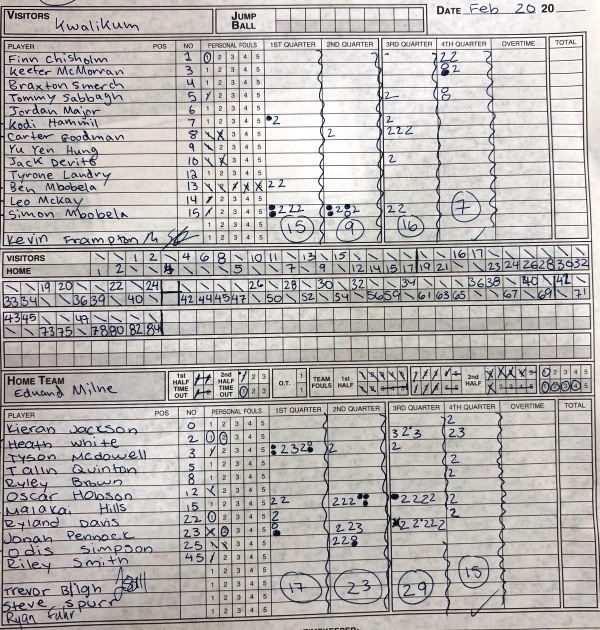 VISITORS Kwalikum JUMP BALL DATE Feb 20 20
PLAYER POS NO PERSONAL FOULS 1ST QUARTER 2ND QUARTER 3RD QUARTER 4TH QUARTER OVERTIME TOTAL
Finn Chisholm 1 1 2 3 4 5 22
Keefer McMorran 3 1 2 3 4 5 2
Braxton Smerch 4 1 2 3 4 5
Tommy Sabbagh 5 2 3 4 5 2
Jordan Major 6 1 2 3 4 5
Kodi Hammil 7 1 2 3 4 5 2 2
Carter Goodman 8 3 4 5 2 222
Yu Yen Hung 9 2 3 4 5
Jack Devito 10 3 4 5 2
Tyrone Landry 12 1 2 3 4 5
Ben Mbobela 13 22
Leo McKay 14 2 3 4 5
Simon Mbobela 15 2 3 4 5 222 22
1 2 3 4 5 15 9 16 7
Kevin Frampton 1 2 3 4 5
VISITORS 1 2 4 6 8 10 11 13 15 16 17
HOME 1 2 4 5 7 9 12 14 15 17 19 21 23 24 26 28 30 32
19 20 22 24 26 28 30 32 34 36 38 40 42
33 34 36 39 40 42 44 45 47 50 52 54 56 59 61 63 65 67 69 71
43 45 47
73 75 78 80 82 84
HOME TEAM Eduard Milne 1st HALF TIME OUT 2nd HALF TIME OUT 1 2 3 O.T. 1 TEAM FOULS 1st HALF 2nd HALF
PLAYER POS NO PERSONAL FOULS 1ST QUARTER 2ND QUARTER 3RD QUARTER 4TH QUARTER OVERTIME TOTAL
Kieran Jackson 0 1 2 3 4 5 2
Heath White 2 1 2 3 4 5 323 23
Tyson McDowell 3 2 3 4 5 232 2 2
Talin Quinton 5 1 2 3 4 5 2
Ryley Brown 8 1 2 3 4 5 2
Oscar Hobson 12 2 3 4 5
Malakai Hills 15 1 2 3 4 5 22 222 2222 2
Ryland Davis 22 1 2 3 4 5 2 2
Jonah Pennock 23 2 3 4 5 223 22222
Odis Simpson 25 3 4 5 22
Riley Smith 45 2 3 4 5
1 2 3 4 5 17 23 29 15
Trevor Bligh 1 2 3 4 5
Steve Spurr 1 2 3 4 5
Ryan Fahr
TIMEKEEPER: